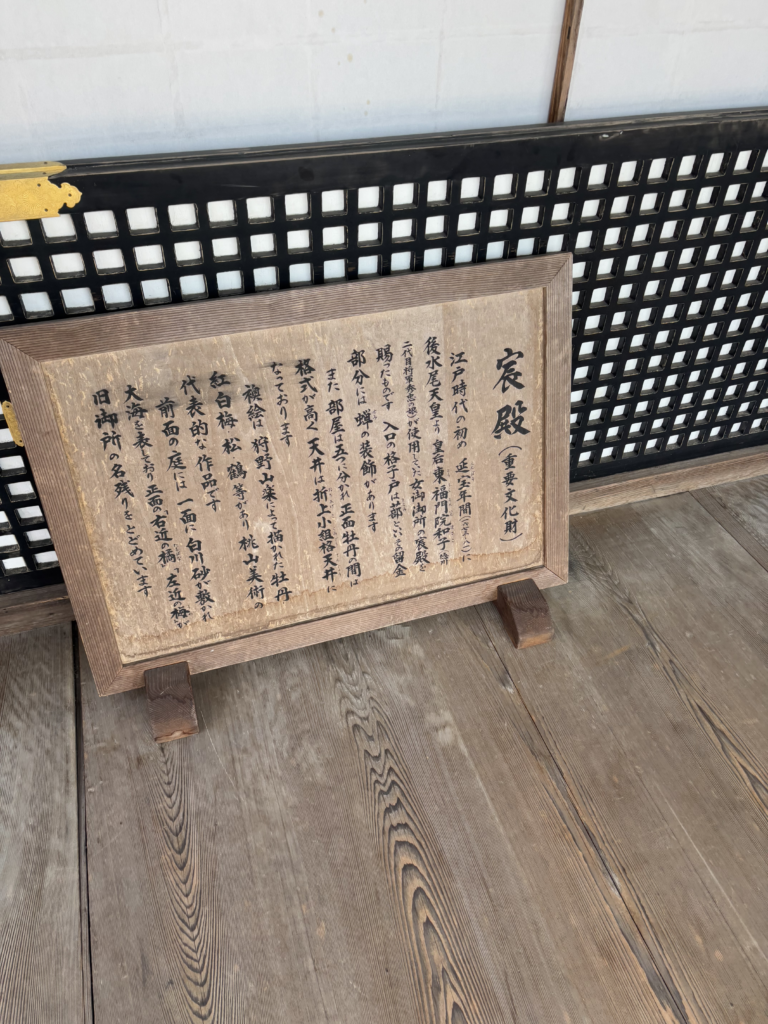 宸殿(重要文化財)
江戸時代の初め 延宝年間に
後水尾天皇より 皇后 東福門院和子
が使用していた女御御所の宸殿を
賜ったものです 入口の格子戸は蔀といい 留金
部分には 蝉の装飾があります
また 部屋は五つに分かれ 正面 牡丹の間は
格式が高く 天井は 折上小組格天井に
なっております
襖絵は 狩野山楽によって描かれた 牡丹
紅白梅 松 鶴 等があり 桃山美術の
代表的な作品です
前面の庭には 一面に 白川砂が敷かれ
大海を表しており 正面の右近の橘 左近の梅が
旧御所の名残りをとどめています